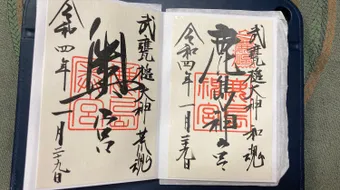 武甕槌大神 和魂
鹿島神宮
令和四年一月二十九日
武甕槌大神 荒魂
奥宮
令和四年一月二十九日